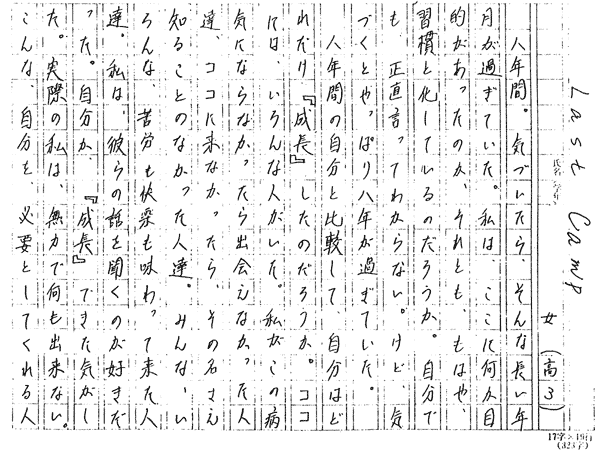 Last Camp
氏名
女（高3）
八年間。気づいたら、そんな長い年
月が過ぎていた。私は、ここに何か目
的があったのか、それとも、もはや、
習慣と化しているのだろうか。自分で
も、正直言ってわからない。けど、気
づくとやっぱり八年が過ぎていた。
八年間の自分と比較して、自分はど
れだけ『成長』したのだろうか。ココ
には、いろんな人がいた。私がこの病
気にならなかったら出会えなかった人
達、ココに来なかったら、その名さえ
知ることのなかった人達。みんな、い
ろんな、苦労も快楽も味わって来た人
達。私は、彼らの話を聞くのが好きだ
った。自分が、『成長』できた気がし
た。実際の私は、無力で何も出来ない。
こんな、自分を、必要としてくれる人
17字×19行
(323字)